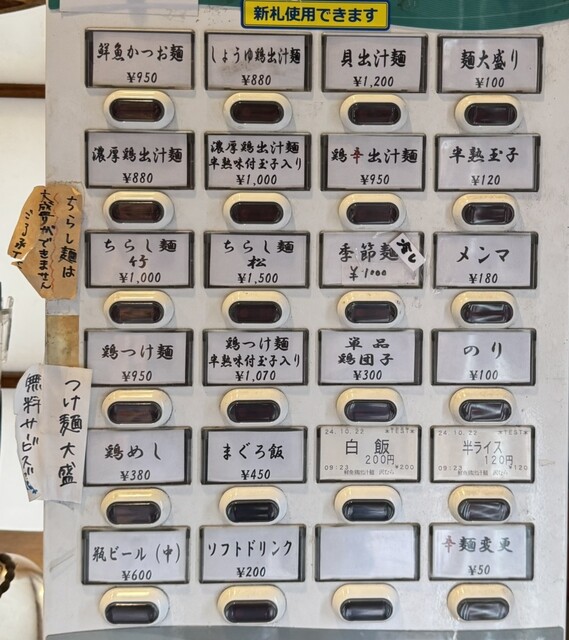 新札使用できます
鮮魚かつお麺
¥950
しょうゆ鶏出汁麺
¥880
貝出汁麺
¥1,200
麺大盛り
¥100
濃厚鶏出汁麺
¥880
濃厚鶏出汁麺
半熟味付玉子入り
¥1,000
鶏辛出汁麺
¥950
半熟玉子
¥120
ちらし麺は
大盛りができません
ご了承下さい
ちらし麺
竹
¥1,000
ちらし麺
松
¥1,500
季節麺
¥1000
メンマ
¥180
鶏つけ麺
¥950
鶏つけ麺
半熟味付玉子入り
¥1,070
単品
鶏団子
¥300
のり
¥100
つけ麺大盛
無料サービス
鶏めし
¥380
まぐろ飯
¥450
24.10.22 *TEST*
白飯
200円
09:23 *200
24.10.22 *TEST*
半ライス
120円
09:23 *120
瓶ビール(中)
¥600
ソフトドリンク
¥200
辛麺変更
¥50